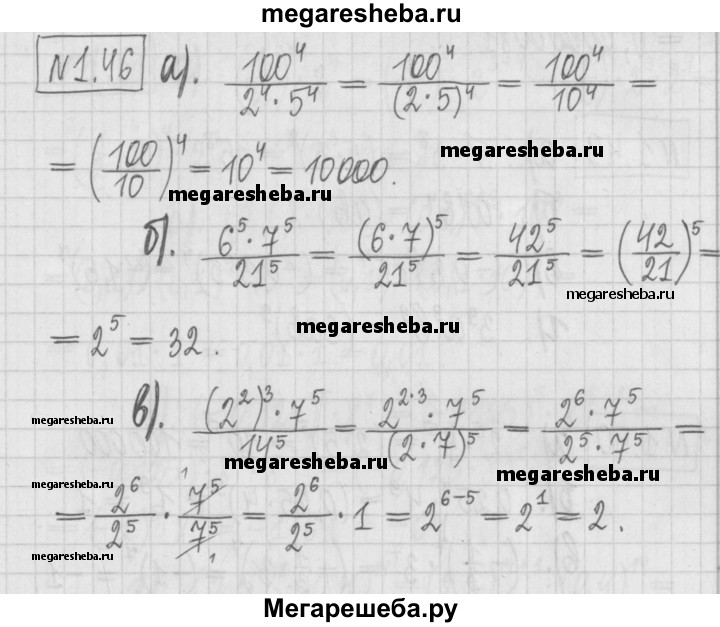 megaresheba.ru
№1.46 а). 100⁴/(2⁴·5⁴) = 100⁴/(2·5)⁴ = 100⁴/10⁴ =
megaresheba.ru
= (100/10)⁴ = 10⁴ = 10000.
megaresheba.ru
б). (6⁵·7⁵)/21⁵ = (6·7)⁵/21⁵ = 42⁵/21⁵ = (42/21)⁵ =
megaresheba.ru
= 2⁵ = 32.
megaresheba.ru
megaresheba.ru
в). ((2²)³·7⁵)/14⁵ = (2^(2·3)·7⁵)/(2·7)⁵ = (2⁶·7⁵)/(2⁵·7⁵) =
megaresheba.ru
megaresheba.ru
megaresheba.ru
= 2⁶/2⁵ · 7⁵/7⁵ ¹ ₁ = 2⁶/2⁵ · 1 = 2⁶⁻⁵ = 2¹ = 2.
megaresheba.ru
Мегарешеба.ру